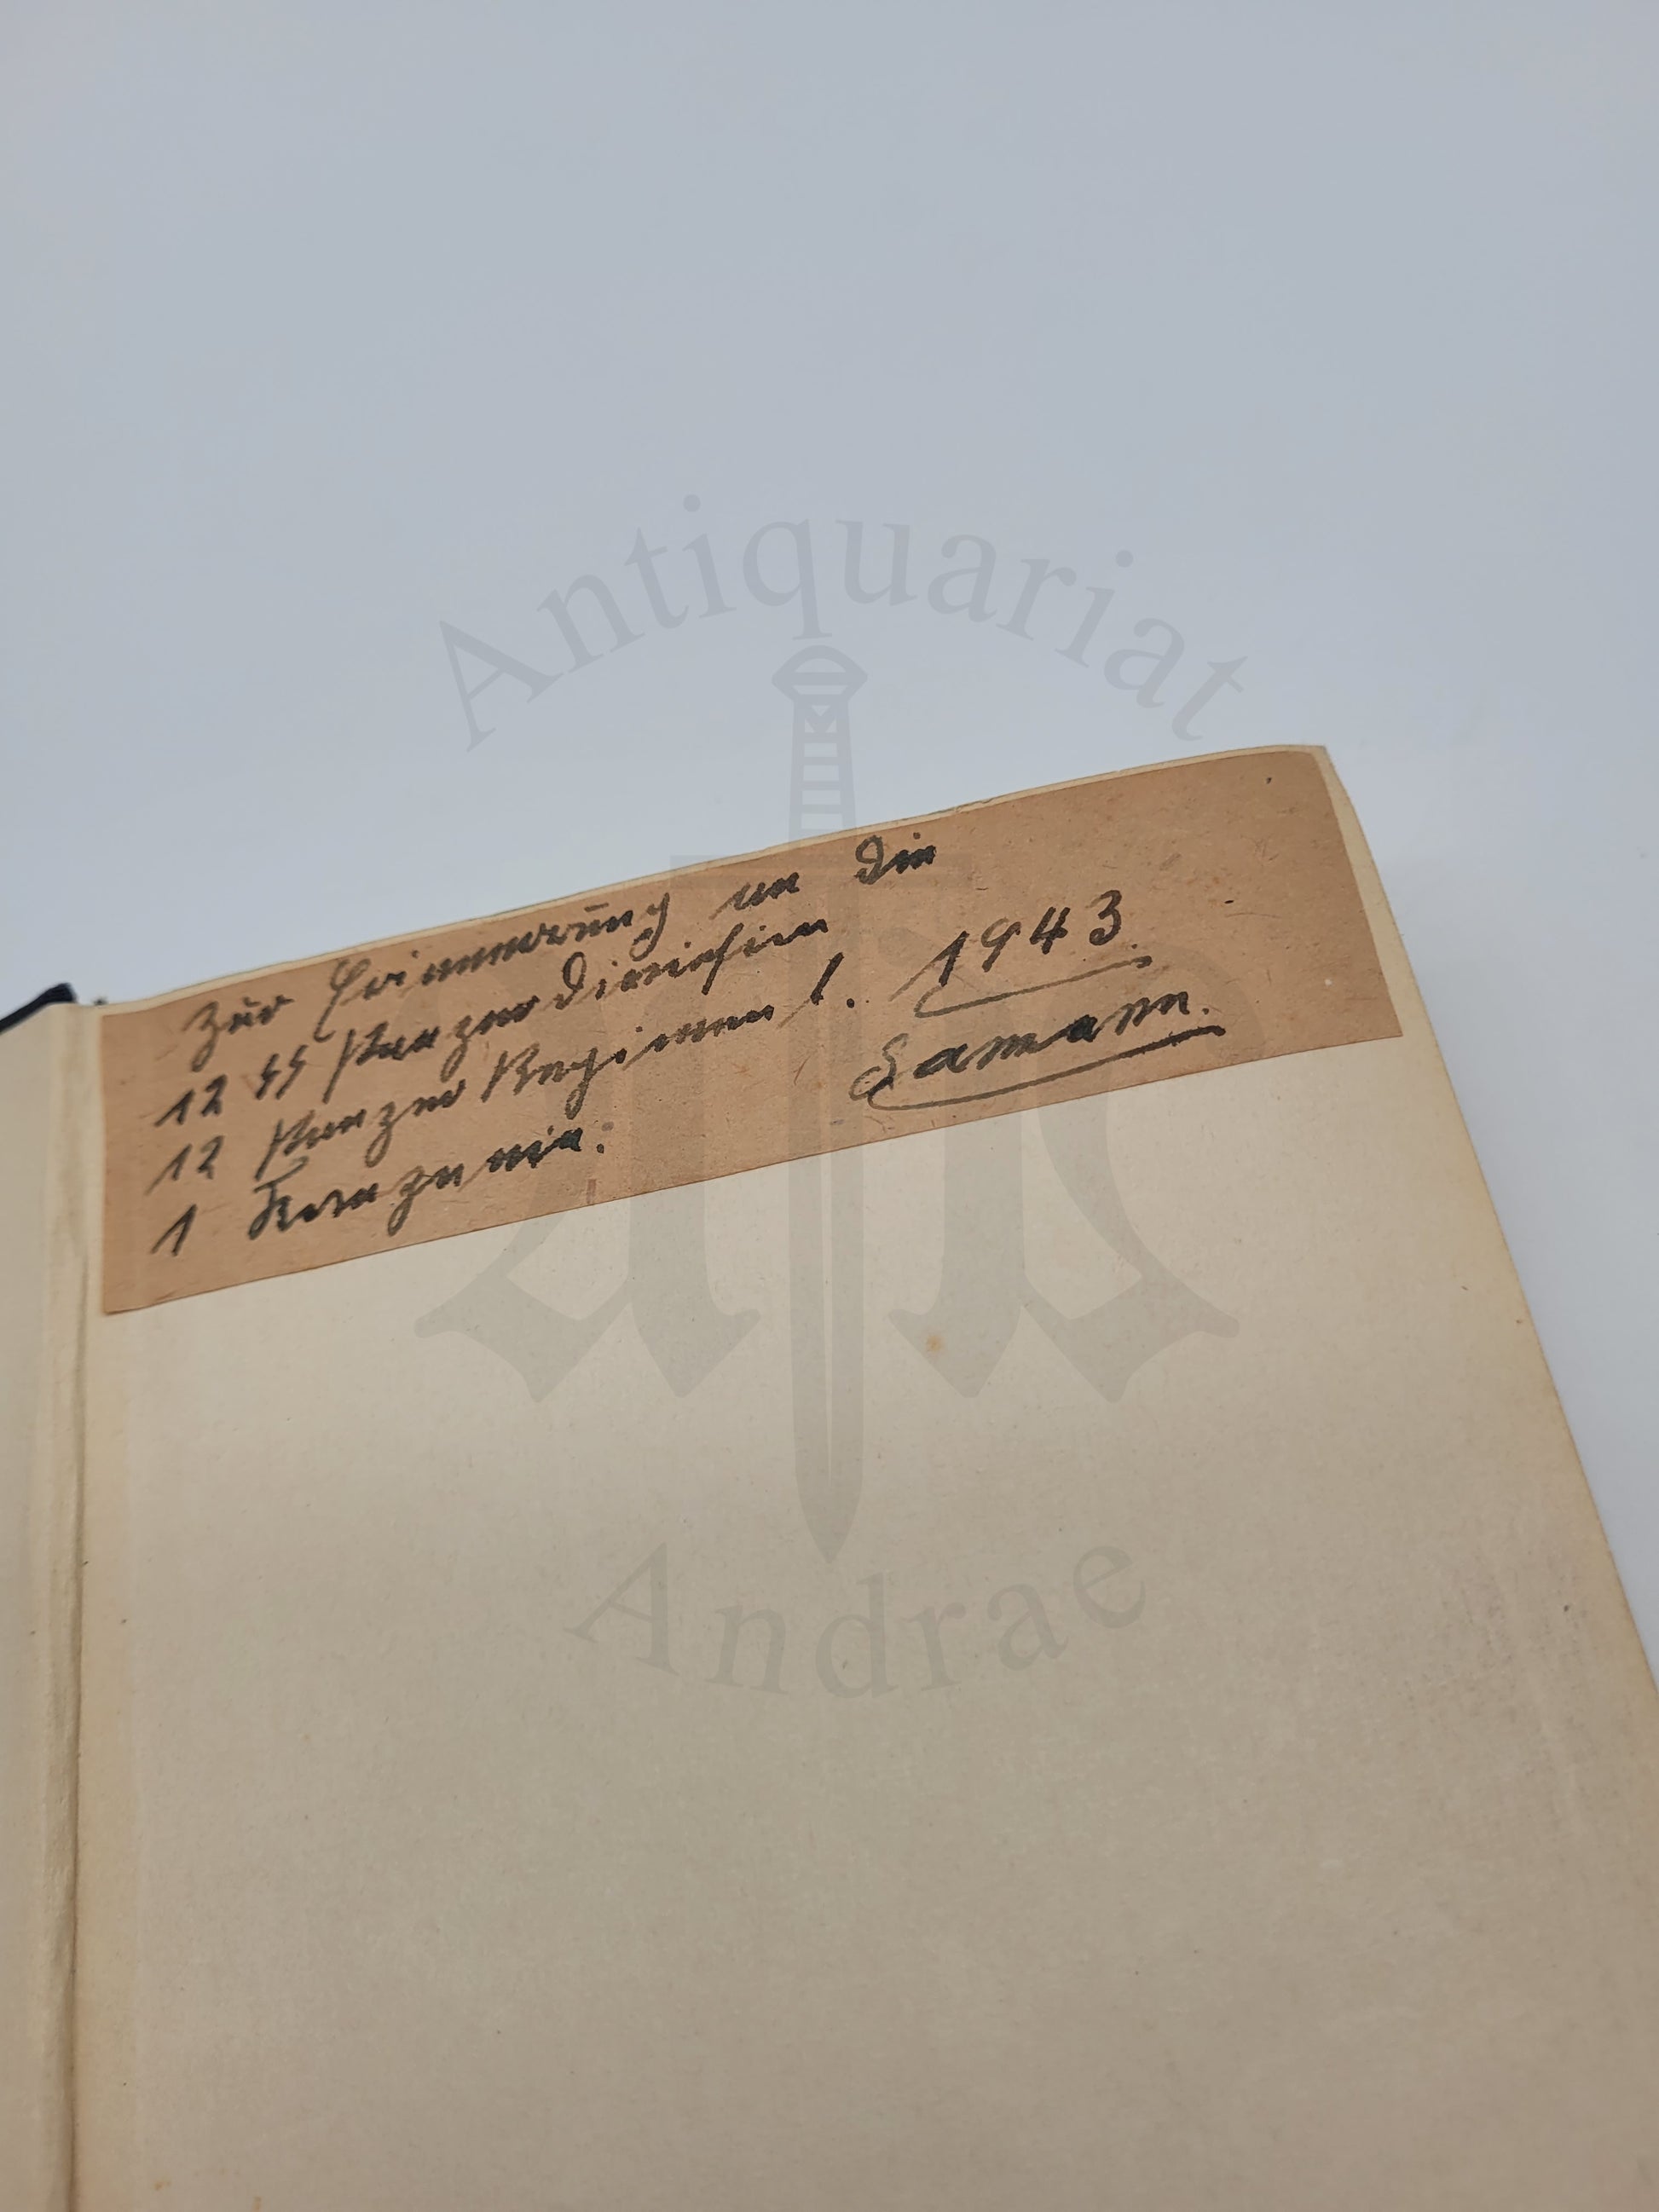 Antiquariat
Zur Erinnerung an die
12 SS Panzerdivision
12 Panzer Regiment. 1943.
1 Kompanie.
Andrae